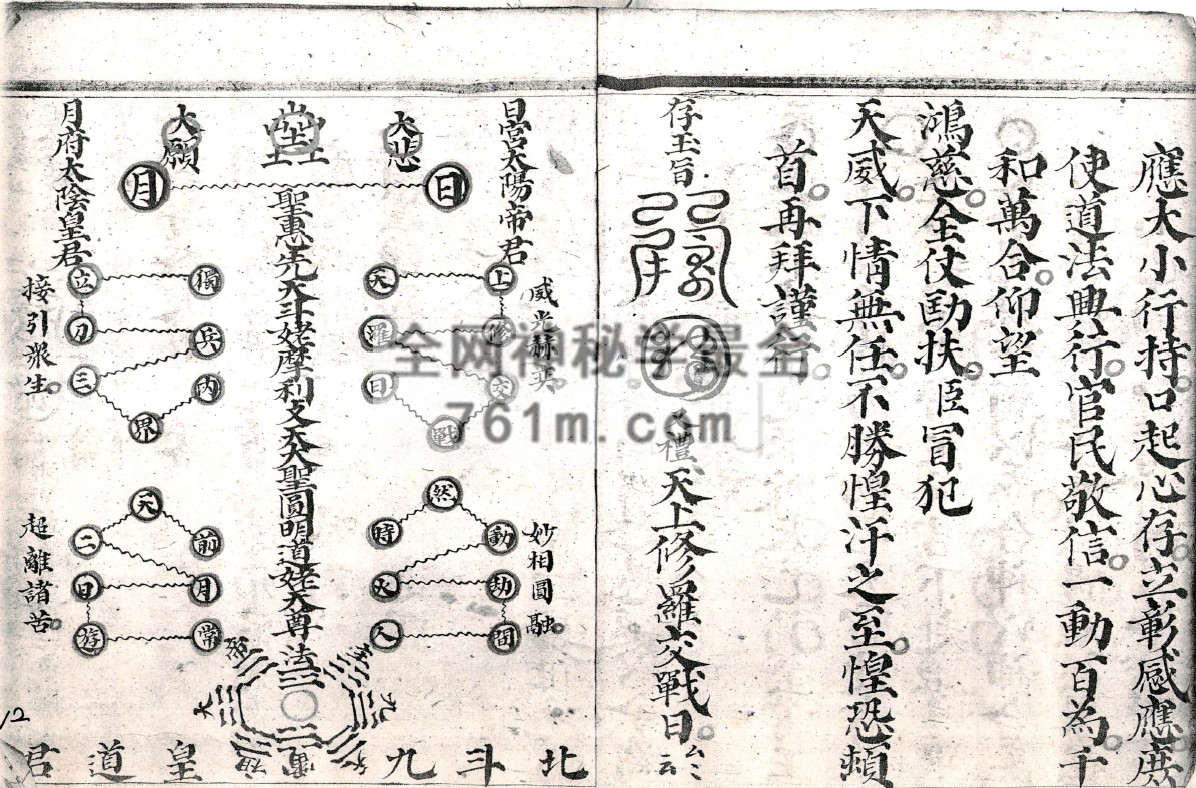 應大小行持口起心存立彰感應庶
使道法興行官民敬信一動百為千
和萬合仰望
鴻慈全仗匡扶臣冒犯
天威下情無任不勝惶汗之至惶恐頓
首再拜謹行
存玉旨
又禮天上修羅交戰日
日宮太陽帝君
大悲
大願
月府太陰皇君
日
月
聖惠先天斗姥摩利攴天大聖圓明道姥天尊
法
威光赫奕
上
天
修
羅
交
日
戰
獨
立
兵
刃
三
內
界
接引衆生
妙相圓融
然
動
時
劫
火
間
入
天
前
二
月
日
常
遊
超離諸苦
北斗九皇道君
12
全网神秘学最全
761m.com